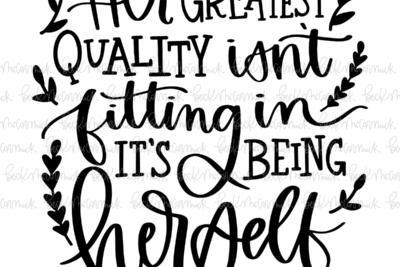 Her GREATEST
QUALITY isn't
fitting in
IT'S BEING
herself